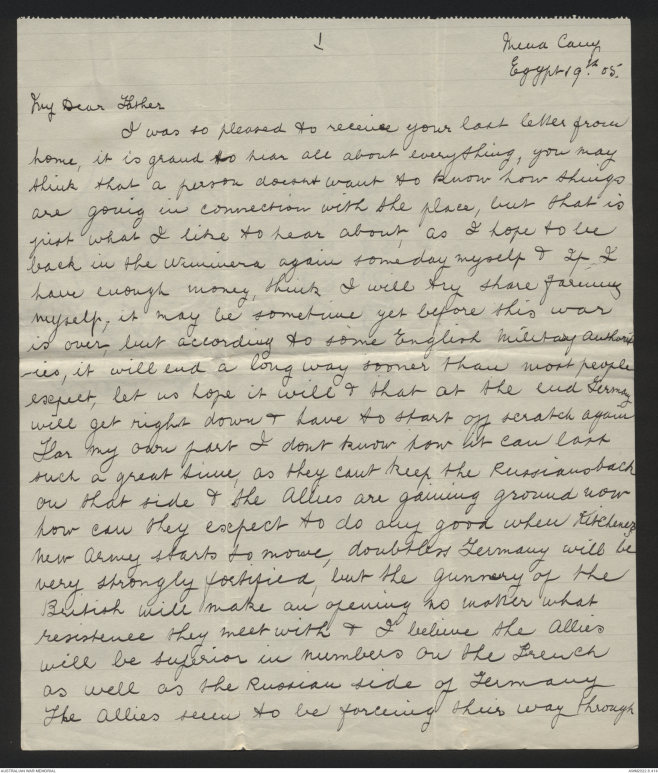 1
Mena Camp
Egypt 19th. 05.
My Dear Father
I was so pleased to receive your last letter from
home, it is grand to hear all about everything, you may
think that a person doesnt want to know how things
are going in connection with the place, but that is
just what I like to hear about, as I hope to be
back in the Wimmera again someday myself & If I
have enough money, think I will try share farming
myself, it may be sometime yet before this war
is over, but according to some English Military Authorit
-ies, it will end a long way sooner than most people
expect, let us hope it will & that at the end Germany
will get right down & have to start off scratch again
For my own part I dont know how it can last
such a great time, as they cant keep the Russians back
on that side & the Allies are gaining ground now
how can they expect to do any good when Kitcheners
new army starts to move, doubtless Germany will be
very strongly fortified, but the gunnery of the
British will make an opening no matter what
resistence they meet with & I believe the Allies
will be superior in numbers on the French
as well as the Russian side of Germany
The Allies seem to be forceing their way through
AUSTRALIAN WAR MEMORIAL